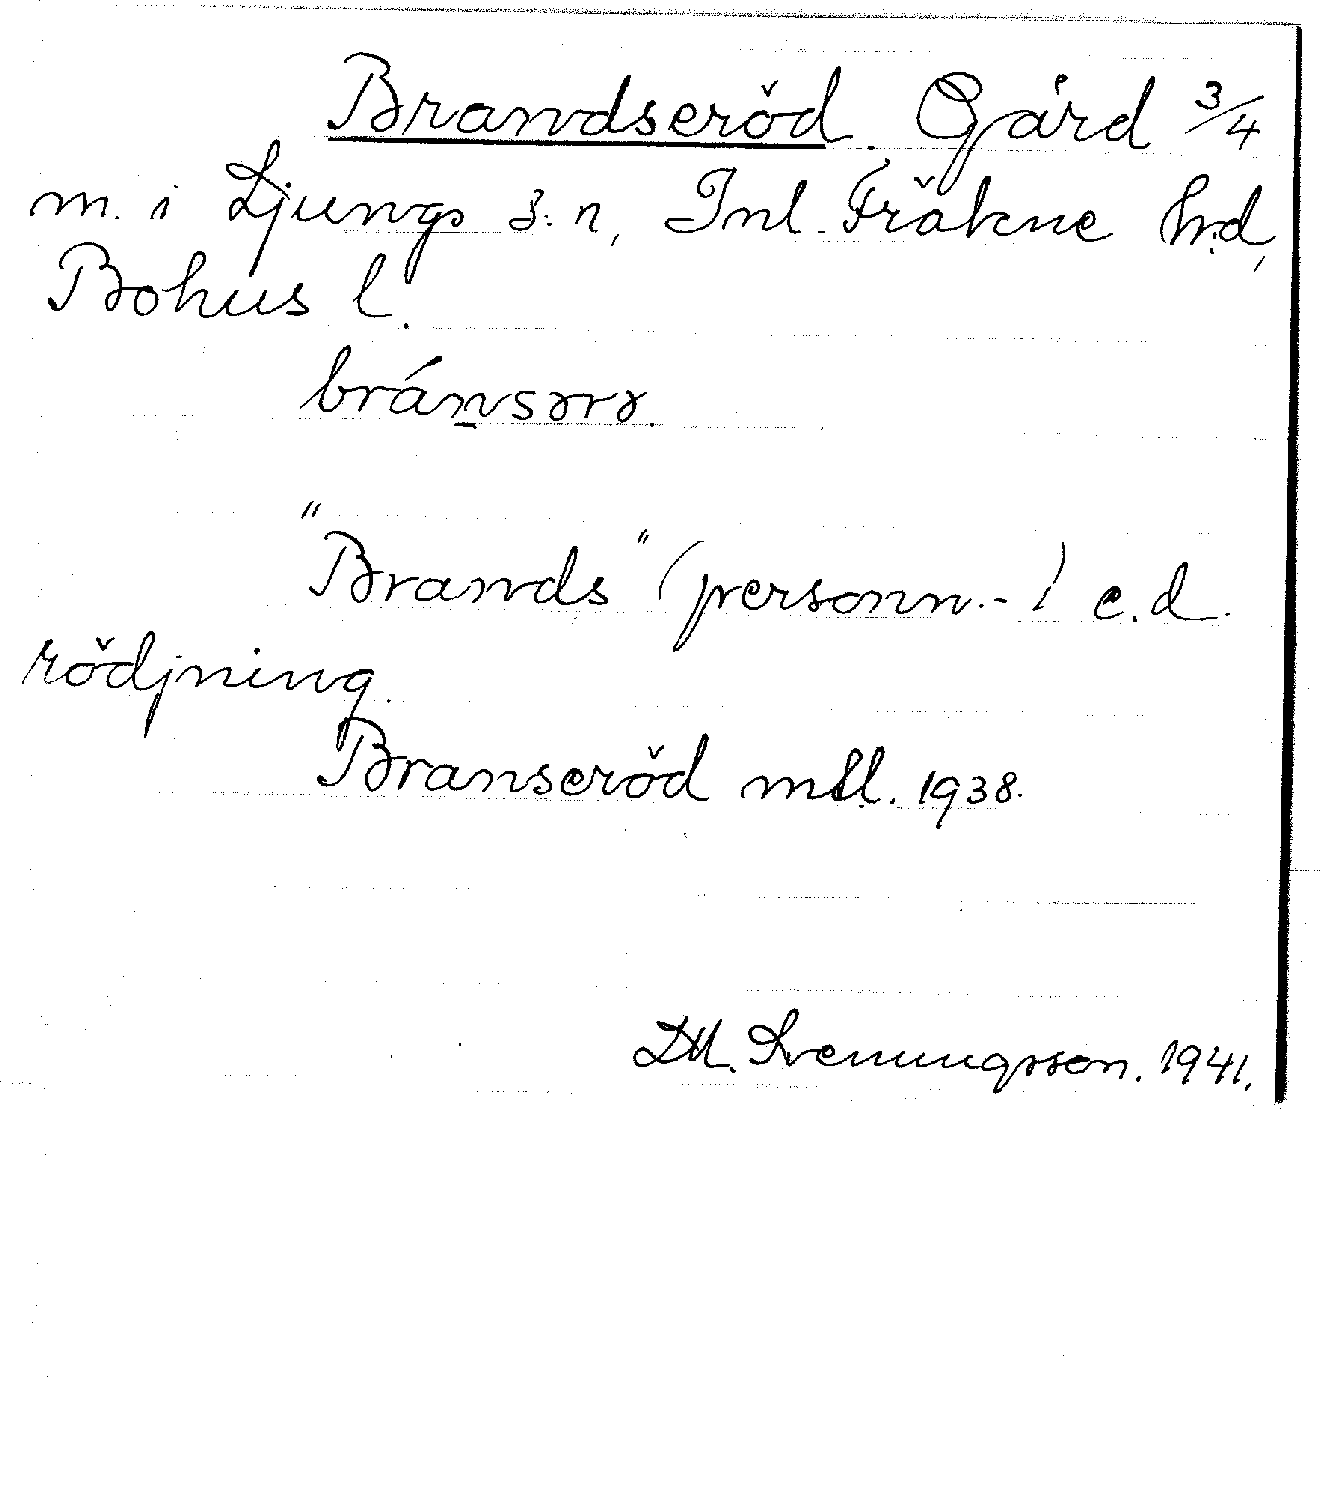 Brandseröd. Gård 3/4
m. i Ljungs s:n, Inl. Fräkne h:d,
Bohus l.
bránsərə.
"Brands" (personn.-) e.d.
rödjning.
Branseröd mtl. 1938.
D.M. Svenningsson. 1941.